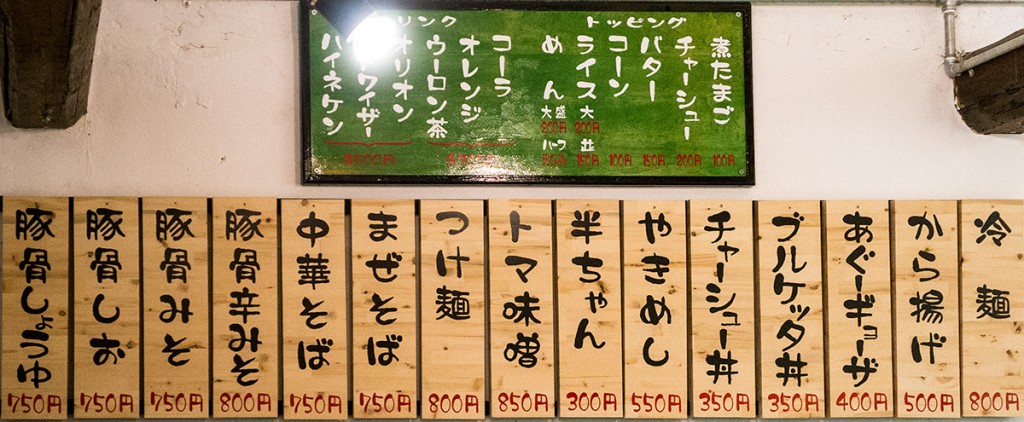 トッピング
煮たまご 100円
チャーシュー 200円
バター 150円
コーン 100円
ライス 大 200円 並 150円
めん 大盛 200円 ハーフ
リンク
コーラ
オレンジ
ウーロン茶
オリオン
ワイザー
ハイネケン
冷麺 800円
から揚げ 500円
あぐーギョーザ 400円
ブルケッタ丼 350円
チャーシュー丼 350円
やきめし 550円
半ちゃん 300円
トマ味噌 850円
つけ麺 800円
まぜそば 750円
中華そば 750円
豚骨辛みそ 800円
豚骨みそ 750円
豚骨しお 750円
豚骨しょうゆ 750円